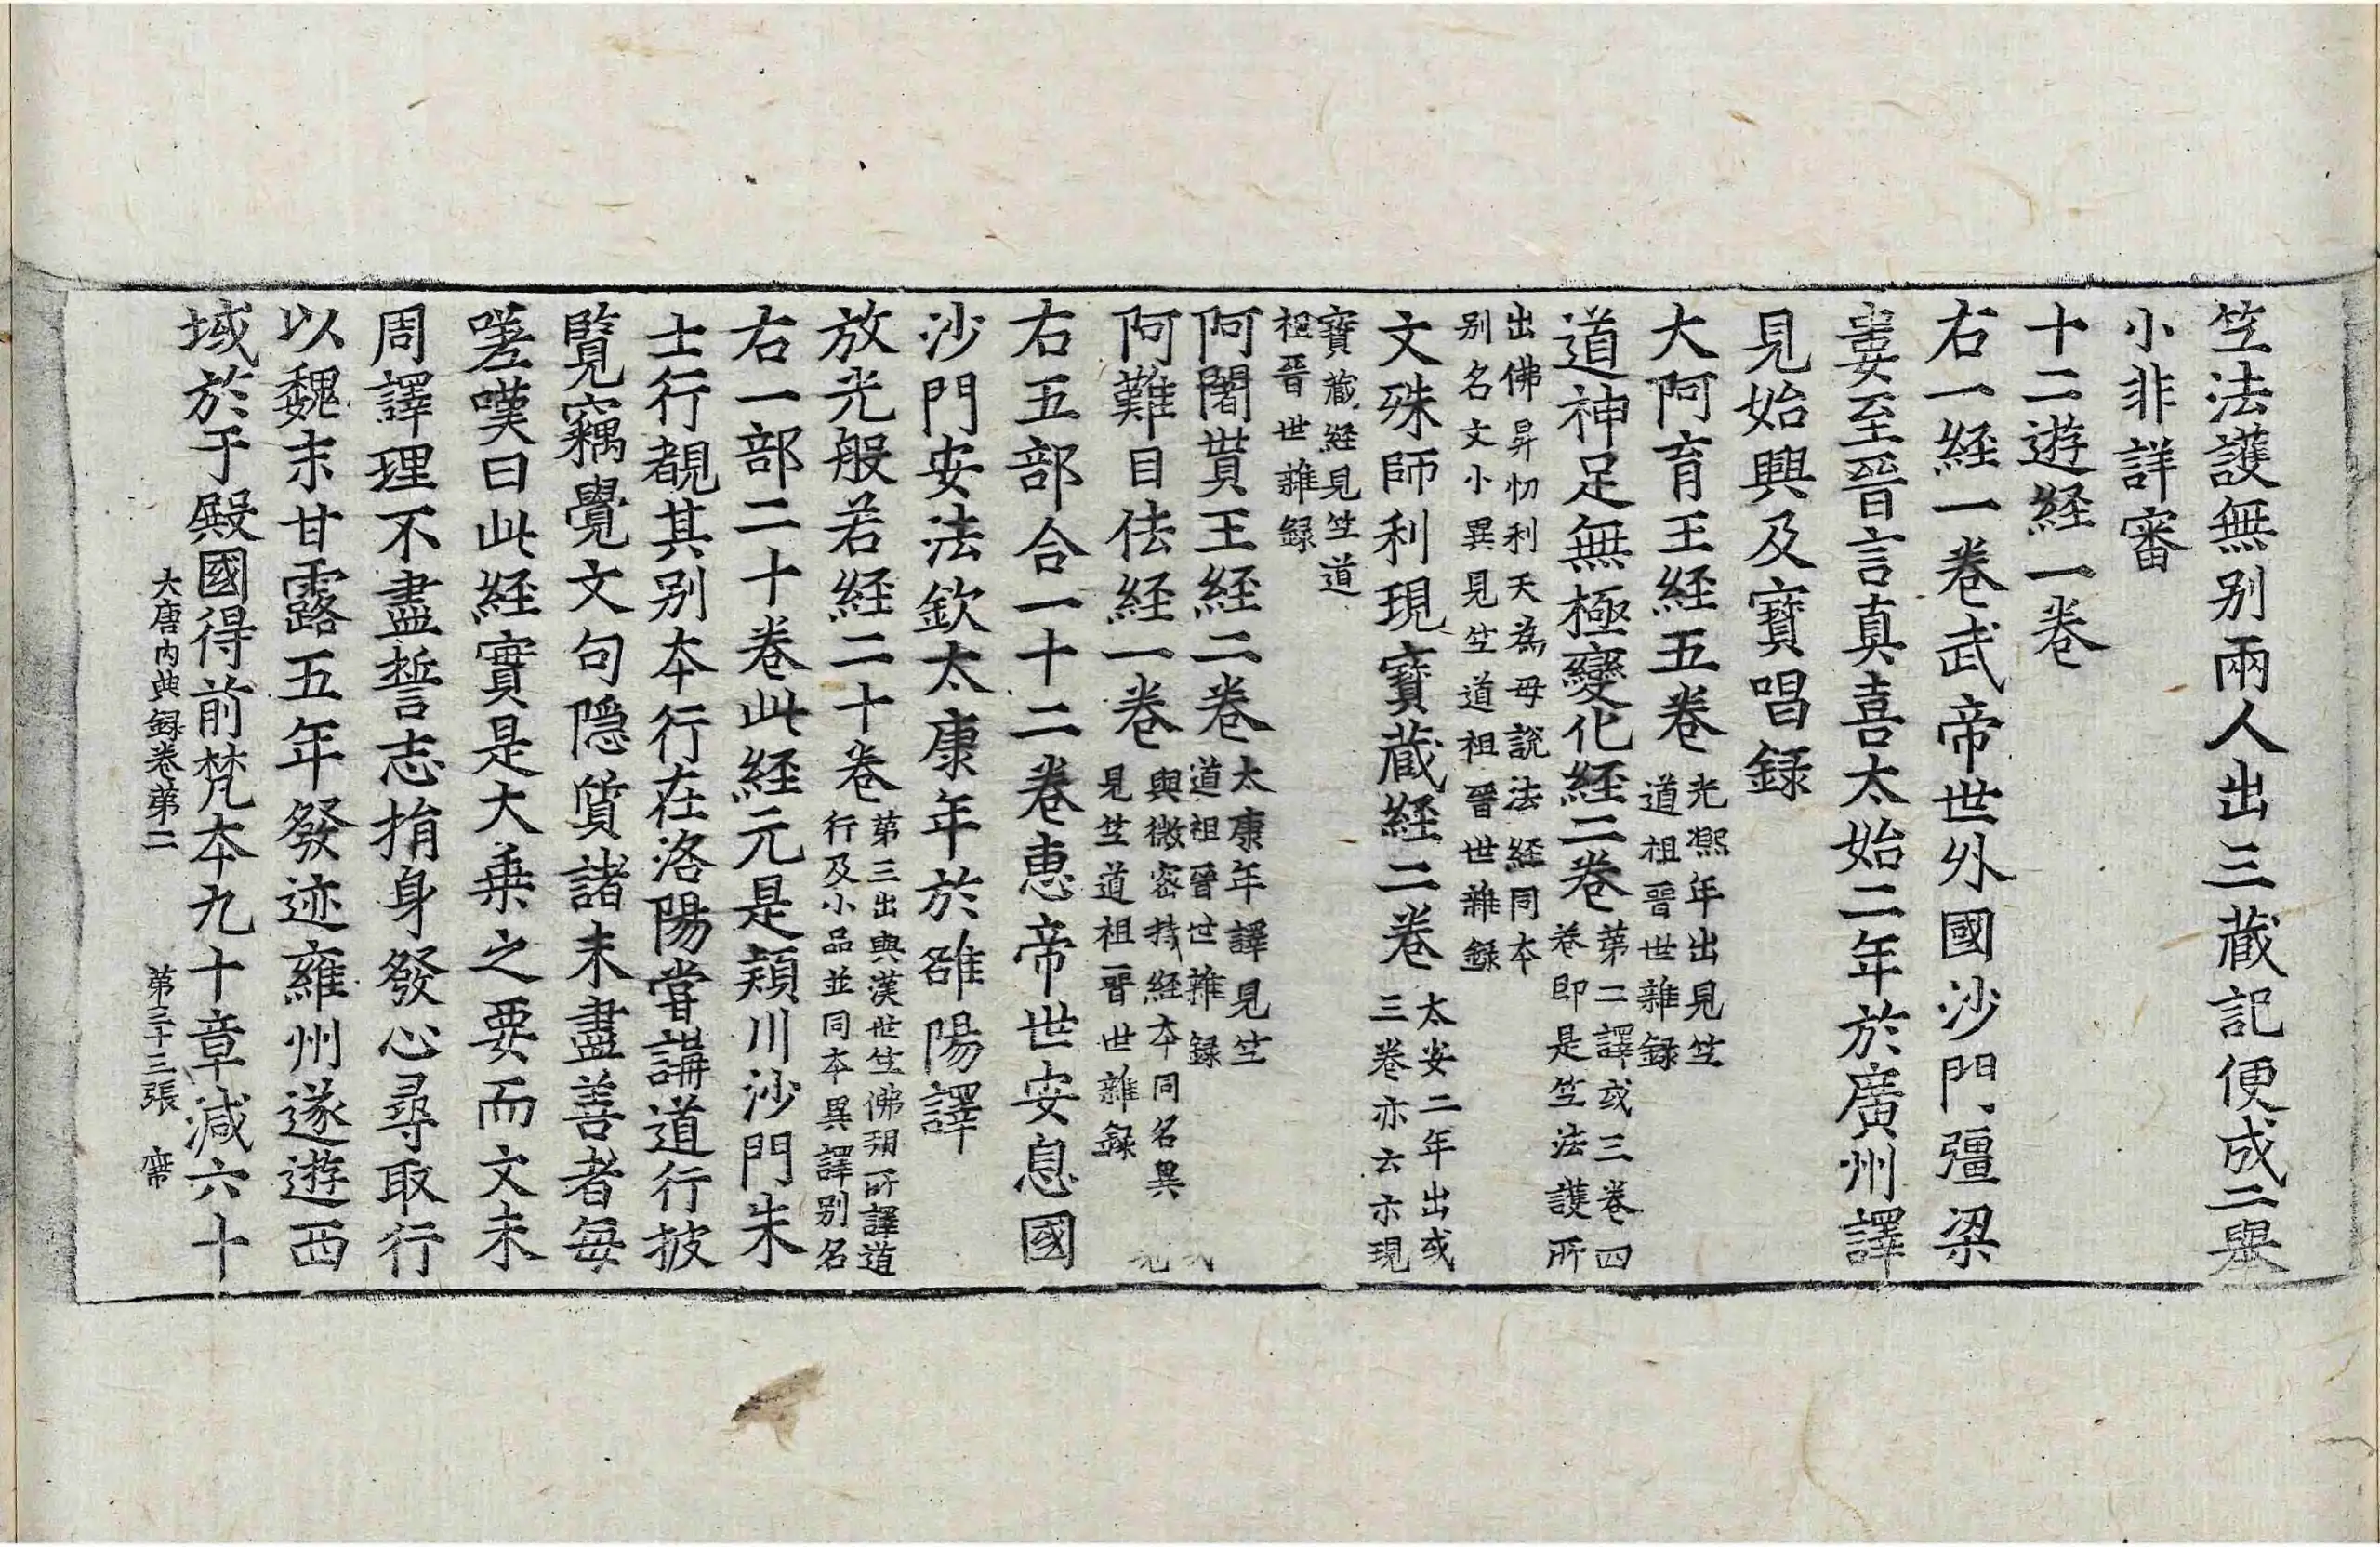 竺法護無别兩人出三藏記便成二舉
小非詳審
十二遊経一卷
右一経一卷武帝世外國沙門彊梁
婁至晉言真喜太始二年於廣州譯
見始興及寶唱録
大阿育王経五卷
光熈年出見竺
道祖晉世雜録
道神足無極變化経二卷
第二譯或三卷四
卷即是竺法護所
出佛昇忉利天為母說法経同本
别名文小異見竺道祖晉世雜録
文殊師利現寶藏経二卷
太安二年出或
三卷亦云示現
寶藏経見竺道
祖晉世雜録
阿闍貰王経二卷
太康年譯見竺
道祖晉世雜録
阿難目佉経一卷
與微密持経本同名異
見竺道祖晉世雜録
右五部合一十二卷惠帝世安息國
沙門安法欽太康年於雒陽譯
放光般若経二十卷
第三出與漢世竺佛朔所譯道
行及小品並同本異譯别名
右一部二十卷此経元是頴川沙門朱
士行覩其别本行在洛陽嘗講道行披
覽竊覺文句隠質諸未盡善者每
嗟嘆曰此経實是大乗之要而文未
周譯理不盡誓志捐身發心尋取行
以魏末甘露五年發迹雍州遂遊西
域於于殿國得前梵本九十章減六十
大唐內典録卷第二 第三十三張 席